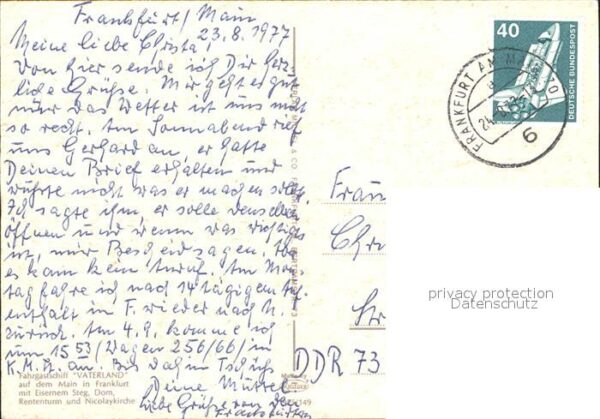 Frankfurt/Main
23.8.1977
Meine liebe Christa!
Von hier sende ich Dir herz-
liche Grüße. Mir geht es gut
nur das Wetter ist uns nicht
so recht. Am Sonnabend rief
uns Gerhard an, er hatte
Deinen Brief erhalten und
wußte nicht was er machen sollte.
Ich sagte ihm, er solle denselben
öffnen und wenn was wichtiges
ist, mir Bescheid sagen.
es kam kein Anruf. Am Mon-
tag fahre ich nach 14 tägigem Auf-
enthalt in F. wieder nach
zurück. Am 4.9. komme ich
um 15 53 (Wagen 256/66) in
K.M.St. an. Bis dahin Tschüß
Deine Mutter
Liebe Grüße von den
Frankfurtern
Fahrgastschiff "VATERLAND"
auf dem Main in Frankfurt
mit Eisernem Steg, Dom,
Rententurm und Nicolaykirche
40
DEUTSCHE BUNDESPOST
FRANKFURT AM MAIN
6
Frau
Chr
Str
DDR 73
privacy protection
Datenschutz